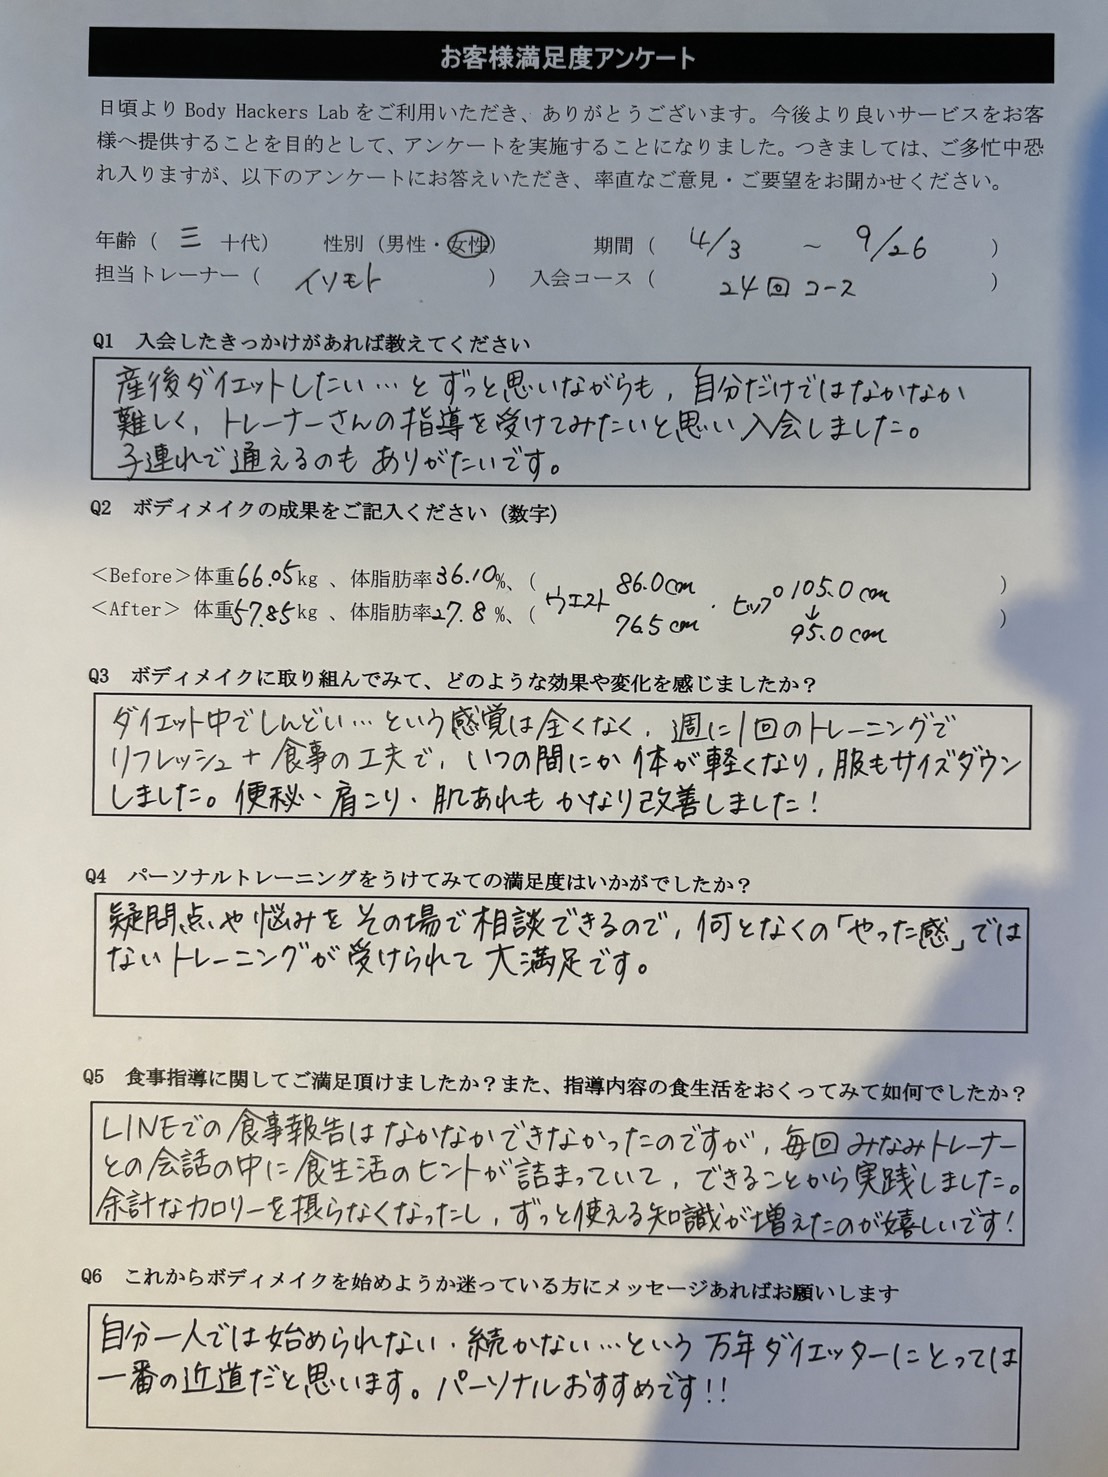 お客様満足度アンケート
日頃より Body Hackers Lab をご利用いただき、ありがとうございます。今後より良いサービスをお客
様へ提供することを目的として、アンケートを実施することになりました。つきましては、ご多忙中恐
れ入りますが、以下のアンケートにお答えいただき、率直なご意見・ご要望をお聞かせください。
年齢（ 三 十代） 性別（男性・女性） 期間（ 4/3 ～ 9/26 ）
担当トレーナー（ イソモト ） 入会コース（ 24回コース ）
Q1 入会したきっかけがあれば教えてください
産後ダイエットしたい…とずっと思いながらも，自分だけではなかなか
難しく，トレーナーさんの指導を受けてみたいと思い入会しました。
子連れで通えるのもありがたいです。
Q2 ボディメイクの成果をご記入ください（数字）
＜Before＞体重66.05kg 、体脂肪率36.10%、（ ウエスト 86.0cm ・ ヒップ 105.0cm ）
↓
＜After＞ 体重57.85kg 、体脂肪率27.8 %、（ 76.5cm 95.0cm ）
Q3 ボディメイクに取り組んでみて、どのような効果や変化を感じましたか？
ダイエット中でしんどい…という感覚は全くなく，週に1回のトレーニングで
リフレッシュ＋食事の工夫で，いつの間にか体が軽くなり，服もサイズダウン
しました。便秘・肩こり・肌あれもかなり改善しました！
Q4 パーソナルトレーニングをうけてみての満足度はいかがでしたか？
疑問点や悩みをその場で相談できるので，何となくの「やった感」では
ないトレーニングが受けられて大満足です。
Q5 食事指導に関してご満足頂けましたか？また、指導内容の食生活をおくってみて如何でしたか？
LINEでの食事報告はなかなかできなかったのですが，毎回みなみトレーナー
との会話の中に食生活のヒントが詰まっていて，できることから実践しました。
余計なカロリーを摂らなくなったし，ずっと使える知識が増えたのが嬉しいです！
Q6 これからボディメイクを始めようか迷っている方にメッセージあればお願いします
自分一人では始められない・続かない…という万年ダイエッターにとっては
一番の近道だと思います。パーソナルおすすめです！！